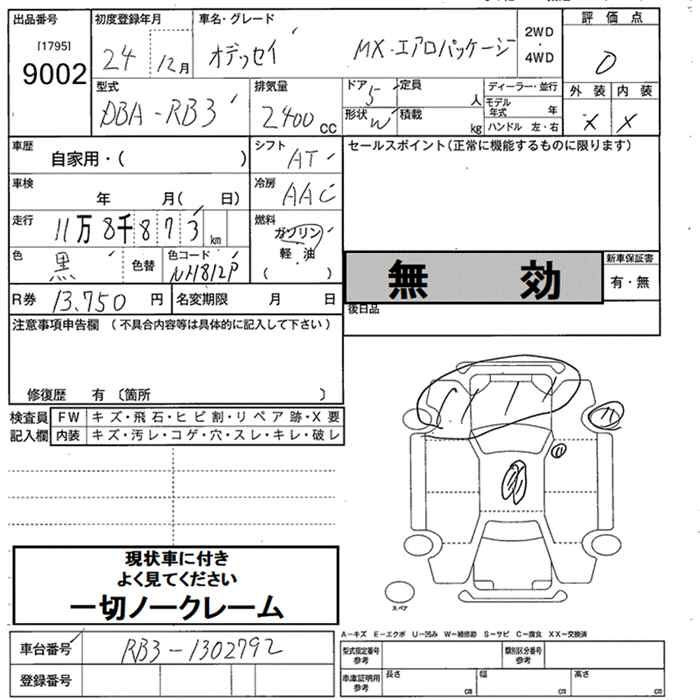 出品番号
[1795]
9002
初度登録年月
24 12月
車名・グレード
オデッセイ MX・エアロパッケージ
2WD
・
4WD
評価点
0
外装 内装
X X
型式
DBA-RB3
排気量
2400cc
ドア 5
形状 W
定員 人
積載 kg
ディーラー・並行
モデル年式 年
ハンドル 左・右
車歴
自家用・( )
シフト
AT
セールスポイント(正常に機能するものに限ります)
車検
年 月( 日)
冷房
AAC
走行
11万8千873km
燃料
ガソリン
軽油
( )
色
黒
色替
色コード
NH812P
無 効
新車保証書
有・無
R券 13.750 円
名変期限 月 日
後日品
注意事項申告欄 (不具合内容等は具体的に記入して下さい)
修復歴 有 〔箇所 〕
検査員
記入欄
FW キズ・飛石・ヒビ割・リペア跡・X要
内装 キズ・汚レ・コゲ・穴・スレ・キレ・破レ
現状車に付き
よく見てください
一切ノークレーム
スペア
A-キズ E-エクボ U-凹み W-補修跡 S-サビ C-腐食 XX-交換済
車台番号 RB3-1302792
登録番号
型式指定番号
参考
類別区分番号
参考
車庫証明用
参考
長さ cm
幅 cm
高さ cm